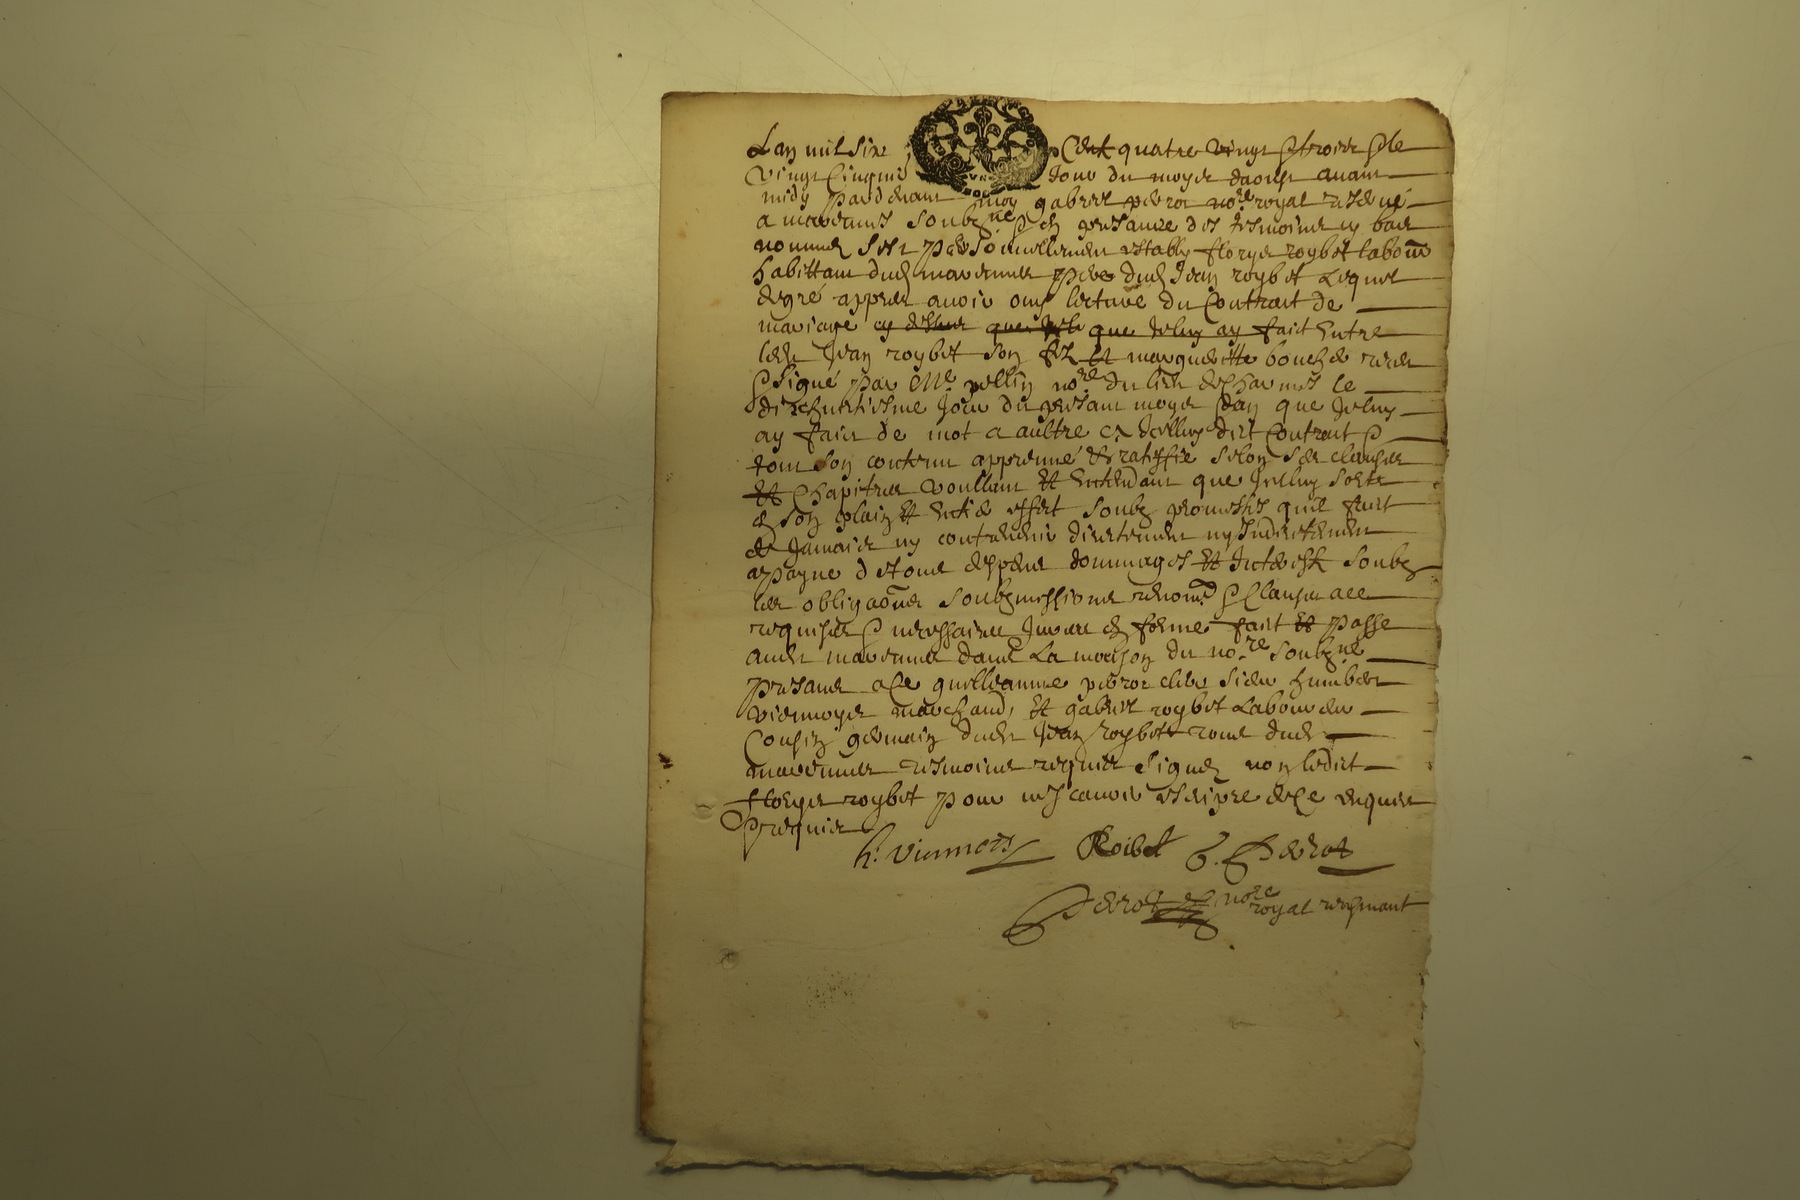 Lan mil six cent quatre vingt & trois & le
vingt cinquie jour du moys daoust avant
midy pardevant moy gabriel perrot no.re royal reservé
a mavennes soubz.né & en presance des tesmoins cy bas
nommes sest personnellement estably florys roybet labour
habittant dud mavennes pere dud Jean roybet Lequel
de gré appres avoir ouy lecture du Contract de
mariage cy dessus que Jcelluy ay faict Entre
led Jean roybet son filz et margueritte
& signé par Me no.re du lieu de charmes le
dixhuictiesme jour du presant moys dan que Jcelluy
ay faict de mot a aultre a Jcelluy dict Contract &
tout son contenu appreuvé et ratiffié selon ses clauses
et Chapitres voullant et Entendant que Jcelluy sorte
en son plain et Entier effect soubz promesses quil faict
de Jamais ny contrevenir directement ny Indirectement
a payne de tous despens dommages et Interests soubz
les obligaōns soubzmissions renon & Clauses ace
requises & necessaires Juré en forme faict et passe
aud mavennes dans La maison du no.re soubz.né
presans a Ce guilleaume perrot clerc sieur humbert
viennoys marchand, et gabriel roybet Laboureur
Cousin germain dud Jean roybet tous dud
mavennes tesmoins requis signes non ledict
florys roybet pour ne scavoir escripre de Ce enquis
& requis
h. viennois Roibet G. Perrot
Perrot no.re royal